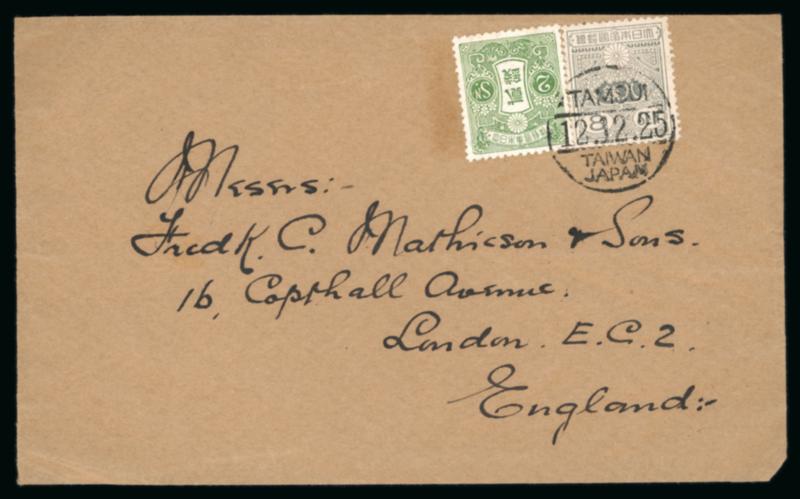 2
貳
錢
Sn
大日本帝國郵便
8
TAMSUI
12.12.25
TAIWAN
JAPAN
Messrs:-
Fredk. C. Mathieson & Sons.
16, Copthall Avenue.
London. E.C.2.
England:-